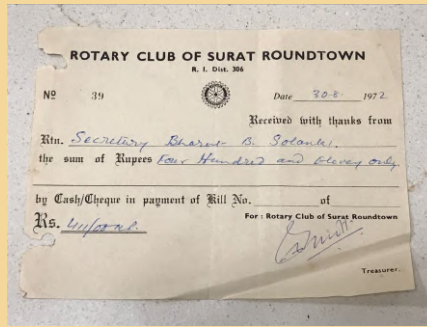 ROTARY CLUB OF SURAT ROUNDTOWN
R. I. Dist. 306
Nº 39 Date 30-8- 1972
Received with thanks from
Rtn. Secretary Bharat B. Solanki.
the sum of Rupees Four Hundred and Eleven only
by Cash/Cheque in payment of Bill No. of
Rs. 411/00
For : Rotary Club of Surat Roundtown
Treasurer.